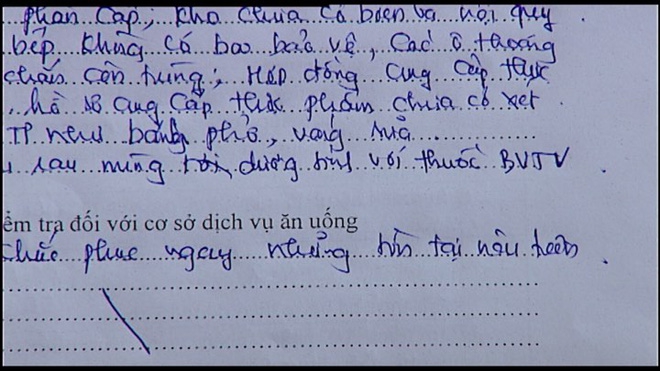 phân cấp, kho chưa có biển và nội quy
bếp không có bao bảo vệ, các ô thoáng
chắn côn trùng, Hợp đồng cung cấp thực
hồ sơ cung cấp thực phẩm chưa có xét
TP như bánh phở, vàng mía
rau mùng tơi dương tính với thuốc BVTV
ểm tra đối với cơ sở dịch vụ ăn uống
khắc phục ngay những tồn tại nêu trên.